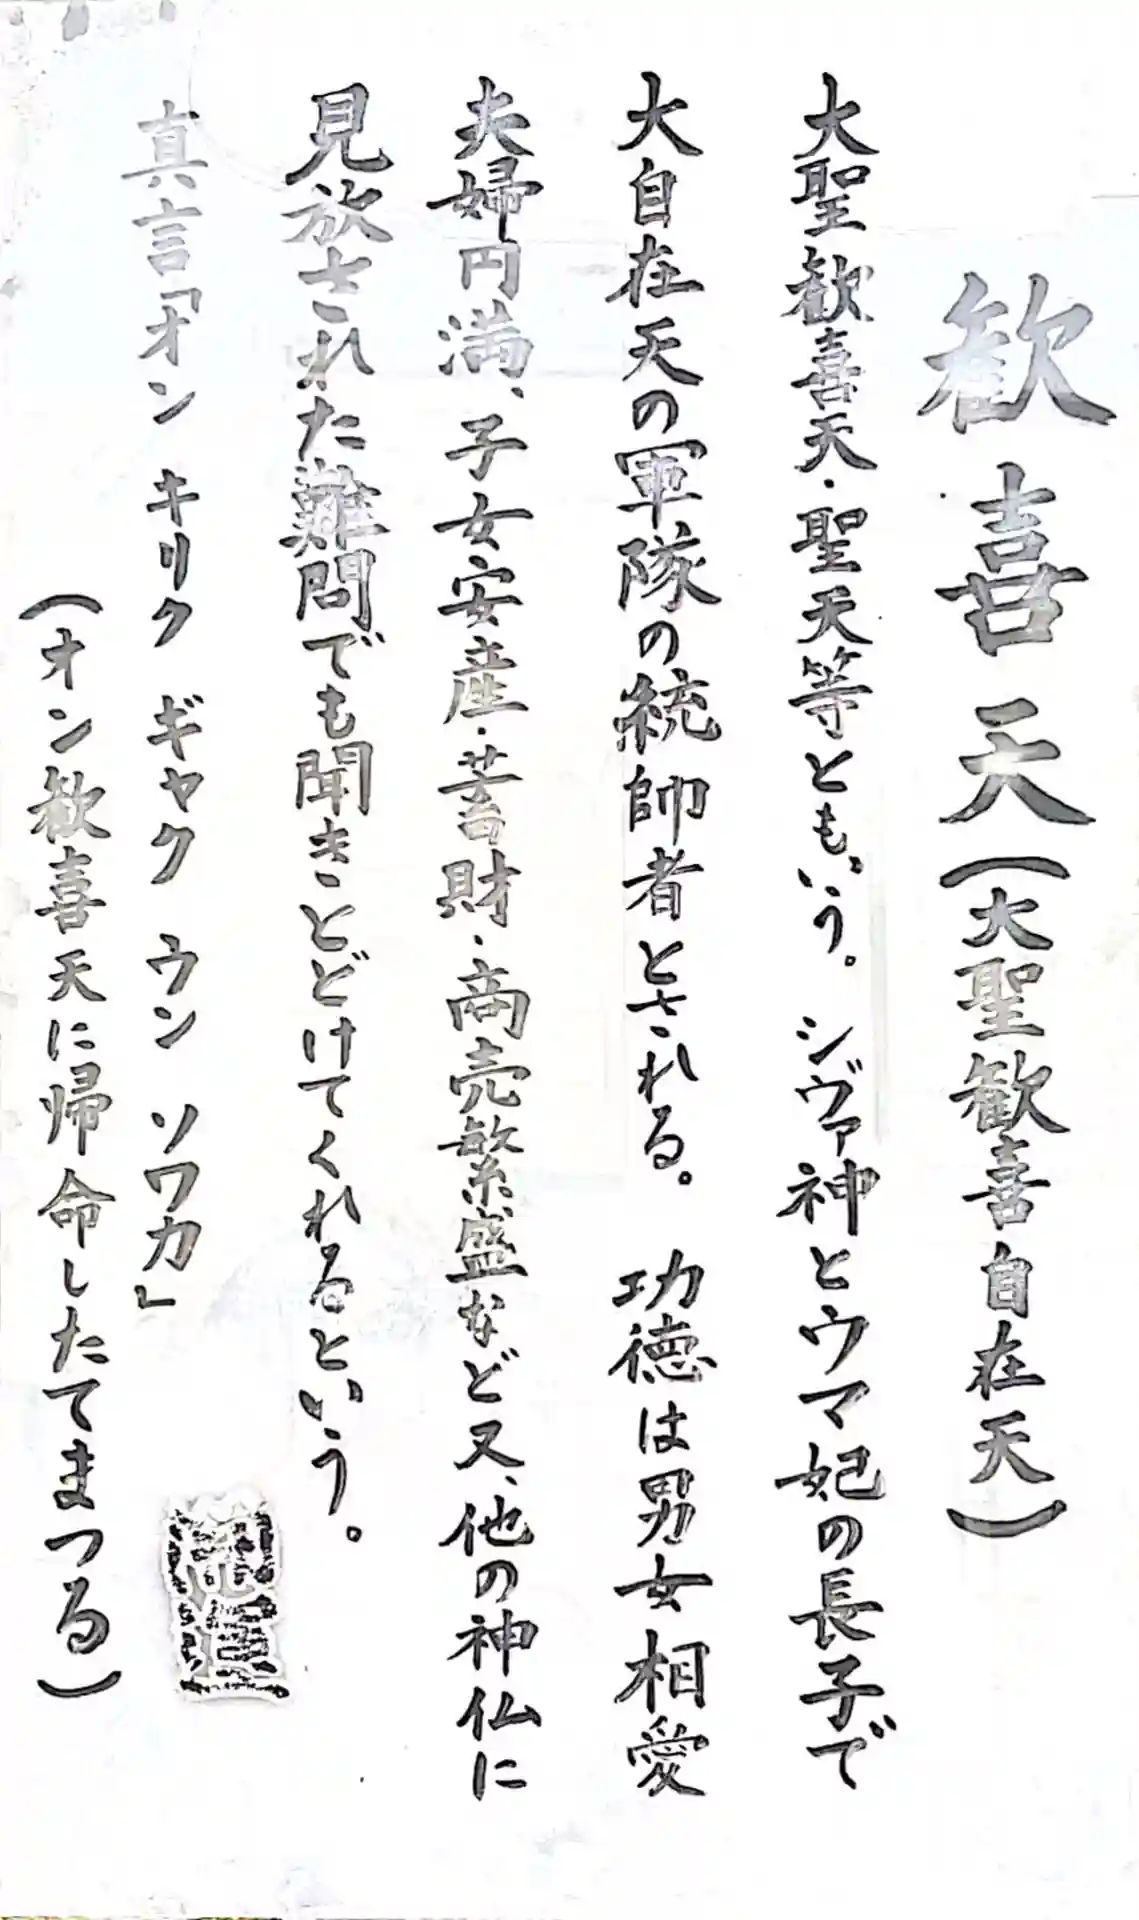 歓喜天(大聖歓喜自在天)
大聖歓喜天・聖天等ともいう。 シヴァ神とウマ妃の長子で
大自在天の軍隊の統帥者とされる。 功徳は男女相愛
夫婦円満、子女安産・蓄財・商売繁盛など又、他の神仏に
見放された難問でも聞きとどけてくれるという。
真言「オン キリク ギャク ウン ソワカ」
(オン歓喜天に帰命したてまつる)